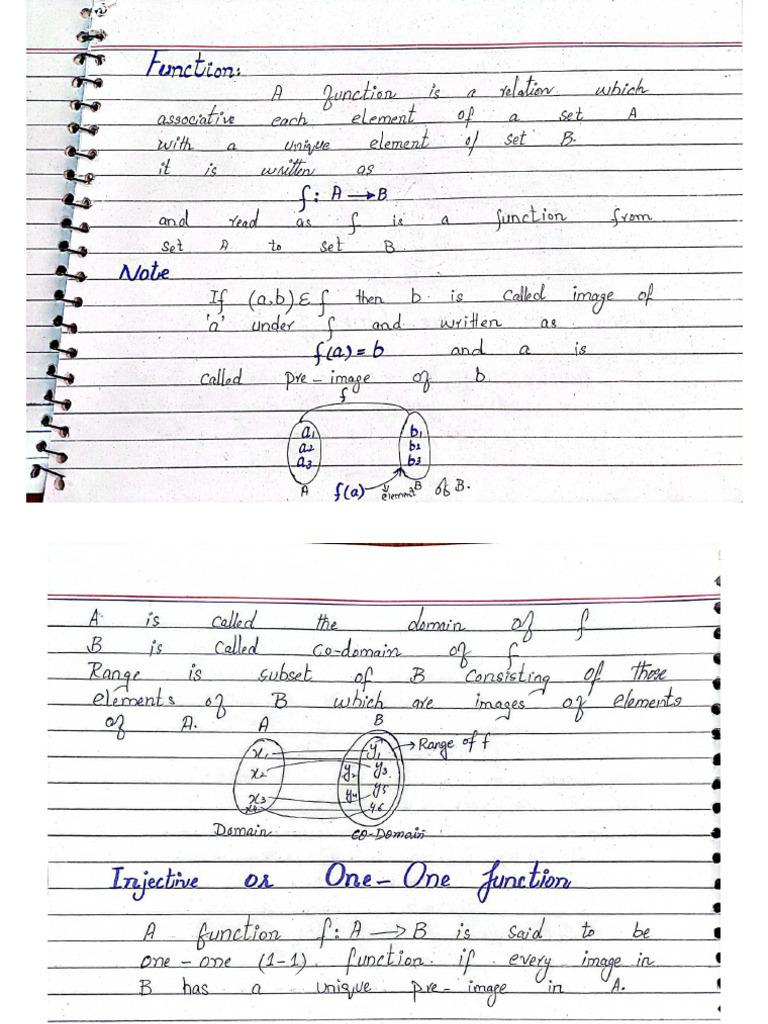 Function:
A function is a relation which
associative each element of a set A
with a unique element of set B.
it is written as
f: A → B
and read as f is a function from
set A to set B
Note
If (a,b) ε f then b is called image of
'a' under f and written as
f(a) = b and a is
called pre-image of b
f
a1 b1
a2 b2
a3 b3
A f(a) element B of B.
A is called the domain of f
B is called co-domain of f
Range is subset of B consisting of those
elements of B which are images of elements
of A. A B
x1 y1 → Range of f
x2 y2 y3
x3 y4 y5
x4 y6
Domain co-Domain
Injective or One-One function
A function f: A → B is said to be
one-one (1-1) function if every image in
B has a unique pre-image in A.